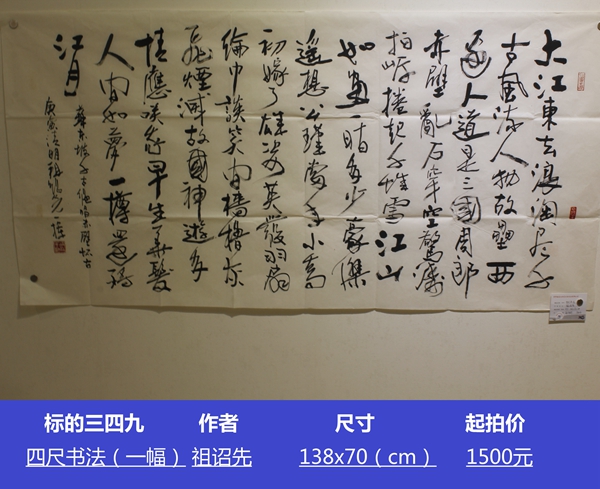 大江東去浪淘尽千
古風流人物故壘西
邊人道是三國周郎
赤壁亂石穿空驚濤
拍岸捲起千堆雪江山
如畫一時多少豪傑
遥想公瑾當年小喬
初嫁了雄姿英發羽扇
綸巾談笑间檣櫓灰
飛煙滅故國神遊多
情應笑我早生華髮
人间如夢一樽還酹
江月
蘇東坡千古絶唱赤壁怀古
庚寅清明
标的三四九 作者 尺寸 起拍价
四尺书法（一幅） 祖诏先 138x70（cm） 1500元